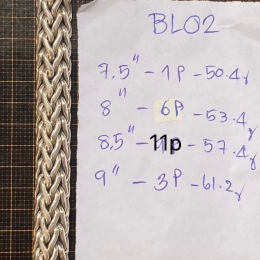 BL02
7,5" - 1P - 50.4g
8" - 6P - 53.4g
8,5" - 11p - 57.4g
9" - 3P - 61.2g